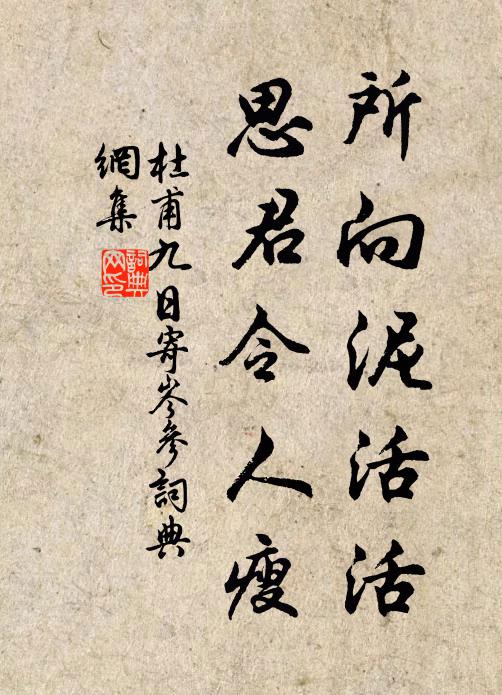 所向泥活活
思君令人瘦
杜甫九日寄岑參詞典
網集
詞典
网印